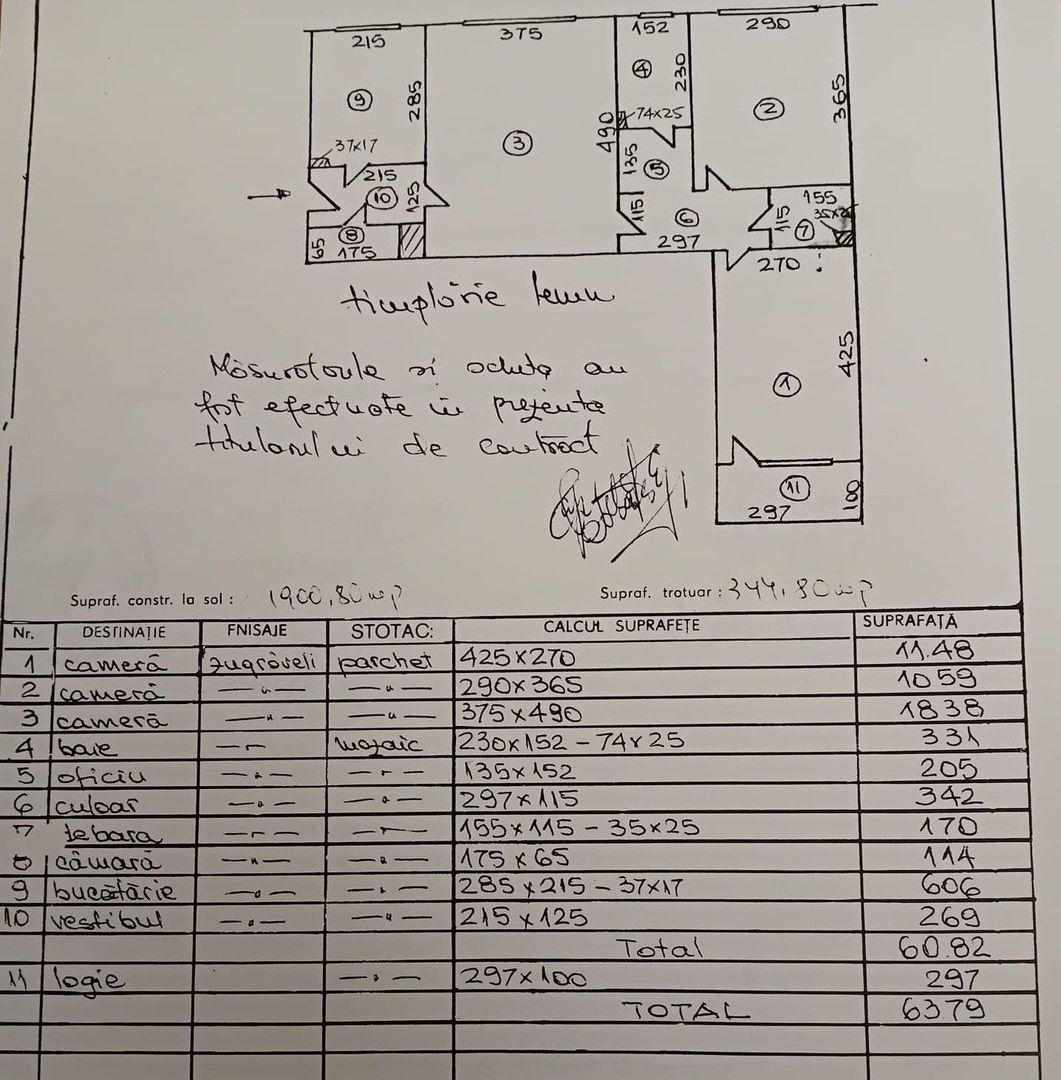 215
375
152
290
9
285
4
230
2
365
37x17
3
490
74x25
215
10
125
135
5
115
6
297
115
155
35x2
7
8
65
175
270
tîmplărie lemn
Măsurătorile și schița au
fost efectuate în prezența
titularului de contract
1
425
11
297
100
Supraf. constr. la sol : 1900,80 mp
Supraf. trotuar : 344,80 mp
Nr. DESTINAȚIE FNISAJE STOTAC: CALCUL SUPRAFEȚE SUPRAFAȚĂ
1 cameră zugrăveli parchet 425x270 11.48
2 cameră —"— —"— 290x365 1059
3 cameră —"— —"— 375x490 1838
4 baie —"— mozaic 230x152 - 74x25 331
5 oficiu —"— —"— 135x152 205
6 culoar —"— —"— 297x115 342
7 debara —"— —"— 155x115 - 35x25 170
8 cămară —"— —"— 175x65 114
9 bucătărie —"— —"— 285x215 - 37x17 606
10 vestibul —"— —"— 215x125 269
Total 60.82
11 logie —"— 297x100 297
TOTAL 6379